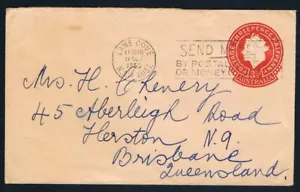 LANE COVE
1955
N.S.W. AUST
SEND M
BY POSTAL
OR MONEY
POSTAGE THREEPENCE HALFPENNY
AUSTRALIA
Mrs. H. Chenery
45 Aberleigh Road
Herston N.9.
Brisbane
Queensland.